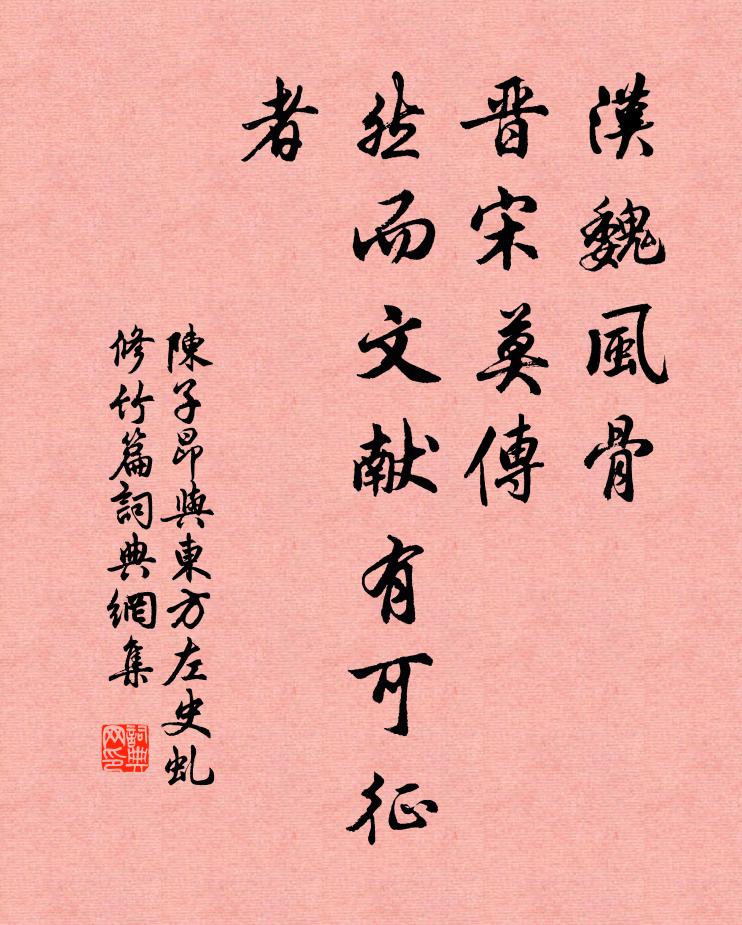 漢魏風骨
晋宋莫傳
然而文献有可征
者
陳子昂與東方左史虬
修竹篇詞典網集
詞典
网印